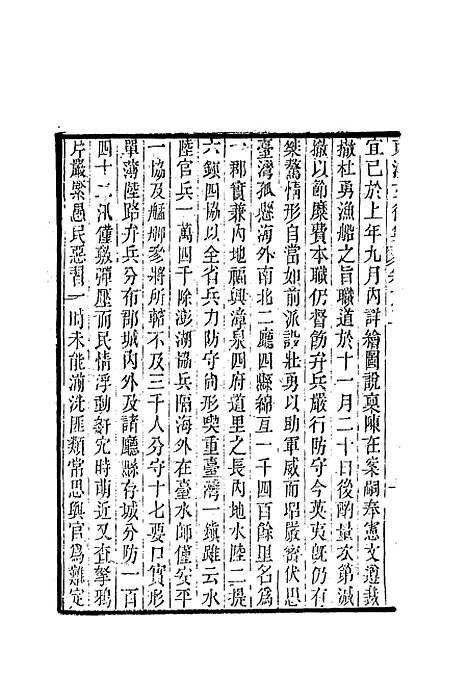 宜已於上年九月內詳繪圖說稟陳在案嗣奉憲文遵裁
撤杜勇漁船之旨職道於十一月二十日後酌量次第減
撤以節糜費本職仍督飭弁兵嚴行防守今英夷旣仍有
桀驁情形自當如前派設壯勇以助軍威而昭嚴密伏思
臺灣孤懸海外南北二廳四縣綿亙一千四百餘里名為
一郡實兼內地福興漳泉四府道里之長內地水陸二提
六鎮四協以全省兵力防守尙形喫重臺灣一鎮雖云水
陸官兵一萬四千除澎湖協兵隔海外在臺水師僅安平
一協及艋舺參將所轄不及三千人分守十七要口實形
單薄陸路弁兵分布郡城內外及諸廳縣存城分防一百
四十二汛僅敷彈壓而民情浮動奸宄時萌近又查拏鴉
片嚴禁愚民惡習一時未能湔洗匪類常思與官為難定